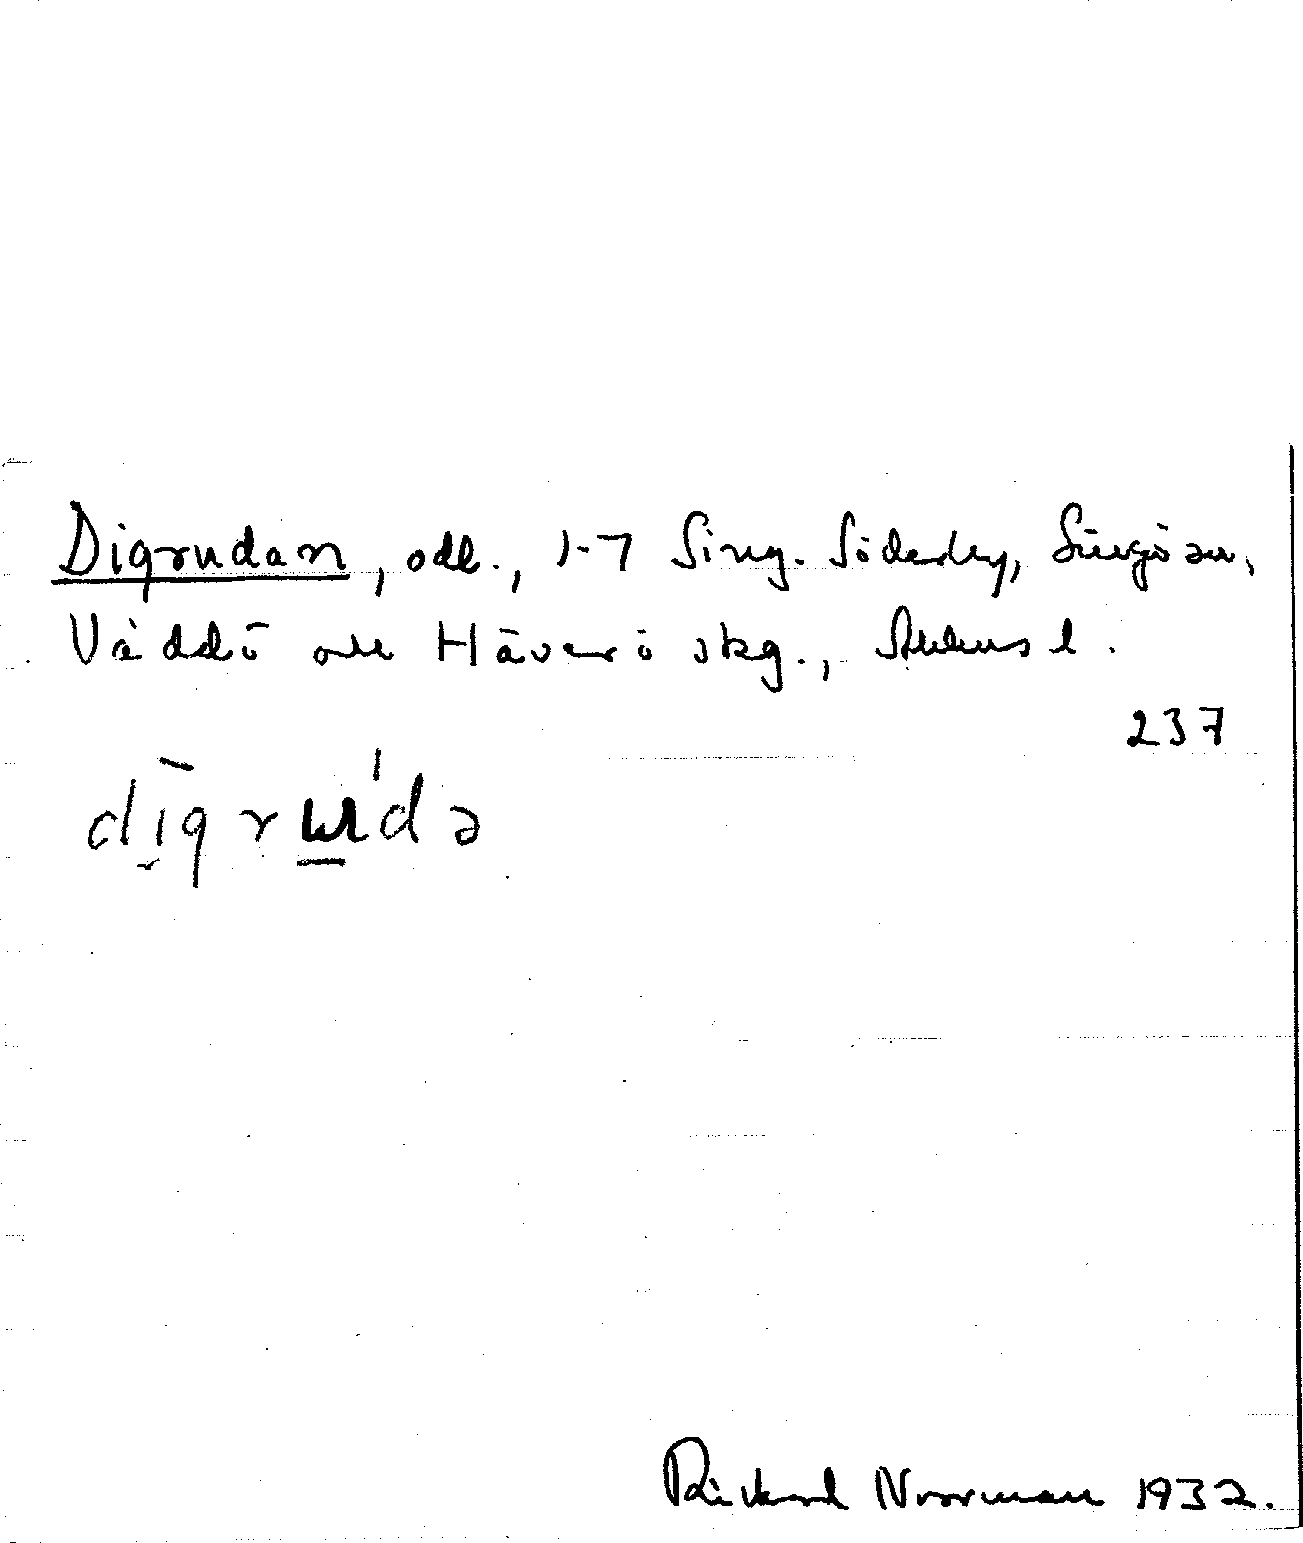 Digrudan, odl., 1-7 Sing. Söderby, Singö sn,
Väddö och Häverö skg., Sthms l.
237
digrudə
Rickard Norrman 1932.